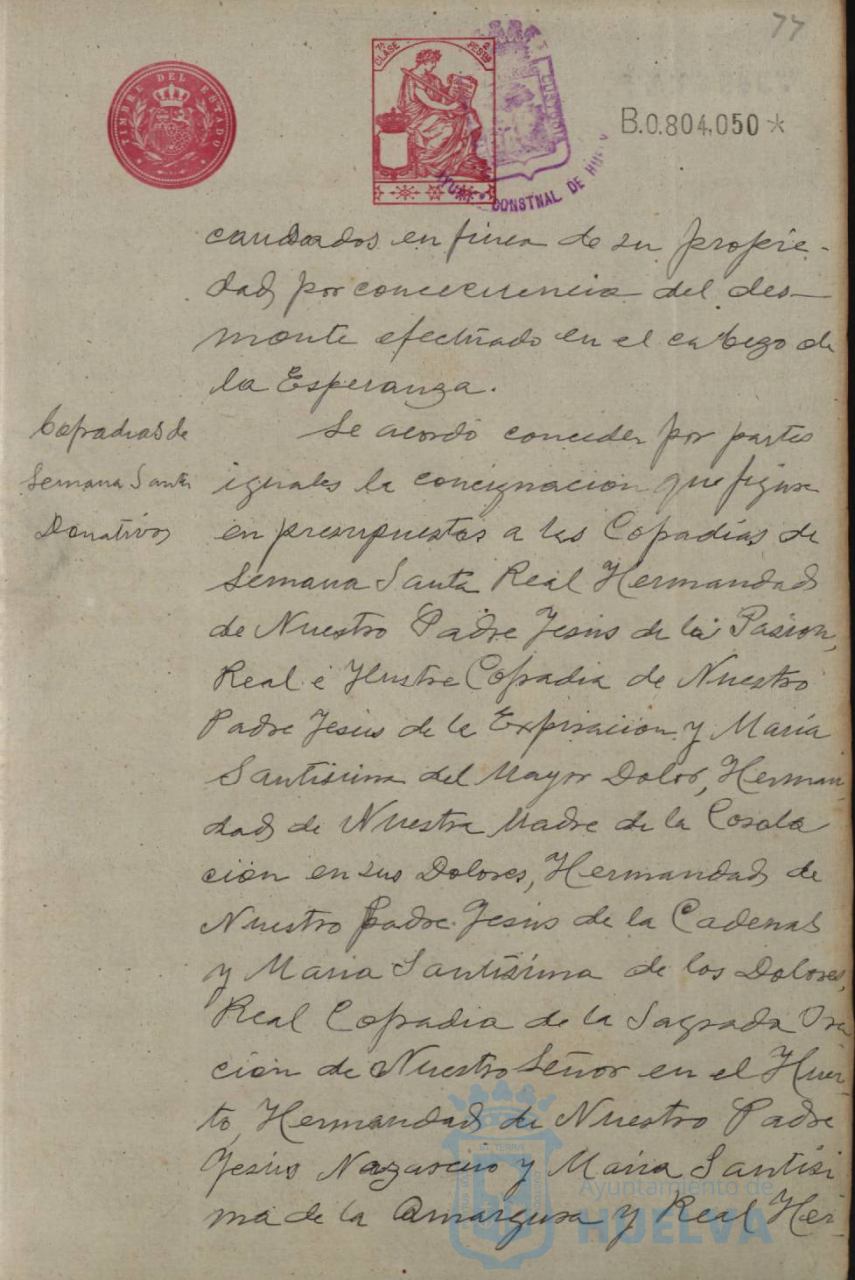 77
TIMBRE DEL ESTADO
7ª CLASE
PESTS
CONSTNAL DE
B.0.804,050*
causados en finca de su propie-
dad por concecuencia del des-
monte efectuado en el cabezo de
la Esperanza.
Cofradias de
Semana Santa
Donativos
Se acordó conceder por partes
iguales la concignación que figura
en presupuestos a las Cofradías de
Semana Santa Real Hermandad
de Nuestro Padre Jesús de la Pasion,
Real é Ilustre Cofradia de Nuestro
Padre Jesús de la Expiracion y María
Santisima del Mayor Dolor, Herman-
dad de Nuestra Madre de la Cosola
ción en sus Dolores, Hermandad de
Nuestro Padre Jesús de la Cadenas
y Maria Santísima de los Dolores,
Real Cofradia de la Sagrada Ora
ción de Nuestro Señor en el Huer-
to, Hermandad de Nuestro Padre
Jesús Nazareno y Maria Santísi
ma de la Amargura y Real Her-
Ayuntamiento de
HUELVA